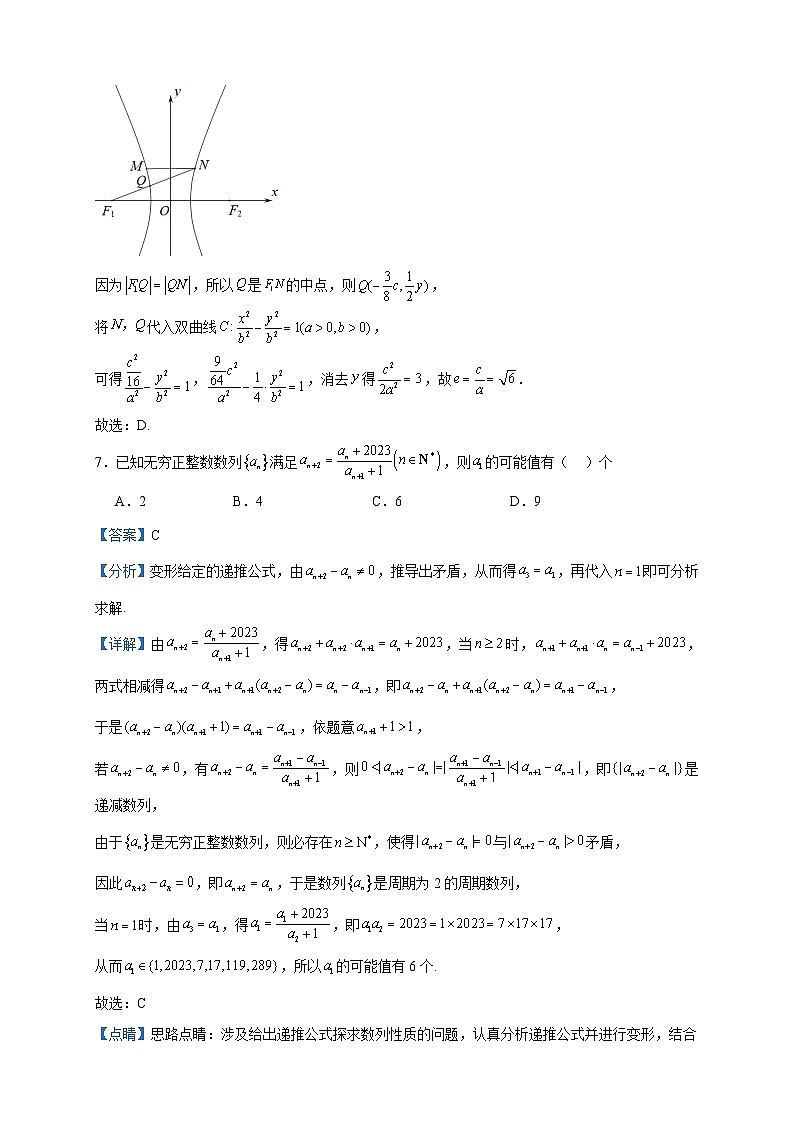 y
M
N
Q
x
F₁
O
F₂
因为|F₁Q|=|QN|,所以Q是F₁N的中点,则Q(-3/8 c, 1/2 y),
将N,Q代入双曲线C: x²/b² - y²/b² = 1(a>0,b>0),
可得 (c²/16)/a² - y²/b² = 1, (9/64 c²)/a² - 1/4·y²/b² = 1,消去y得 c²/2a² = 3,故e = c/a = √6.
故选:D.
7.已知无穷正整数数列{aₙ}满足aₙ₊₂ = (aₙ+2023)/(aₙ₊₁+1) (n∈N*),则a₁的可能值有( )个
A.2 B.4 C.6 D.9
【答案】C
【分析】变形给定的递推公式,由aₙ₊₂-aₙ≠0,推导出矛盾,从而得a₃=a₁,再代入n=1即可分析
求解.
【详解】由aₙ₊₂ = (aₙ+2023)/(aₙ₊₁+1),得aₙ₊₂+aₙ₊₂·aₙ₊₁=aₙ+2023,当n≥2时,aₙ₊₁+aₙ₊₁·aₙ=aₙ₋₁+2023,
两式相减得aₙ₊₂-aₙ₊₁+aₙ₊₁(aₙ₊₂-aₙ)=aₙ-aₙ₋₁,即aₙ₊₂-aₙ+aₙ₊₁(aₙ₊₂-aₙ)=aₙ₊₁-aₙ₋₁,
于是(aₙ₊₂-aₙ)(aₙ₊₁+1)=aₙ₊₁-aₙ₋₁,依题意aₙ₊₁+1>1,
若aₙ₊₂-aₙ≠0,有aₙ₊₂-aₙ = (aₙ₊₁-aₙ₋₁)/(aₙ₊₁+1),则0<|aₙ₊₂-aₙ|=|(aₙ₊₁-aₙ₋₁)/(aₙ₊₁+1)|<|aₙ₊₁-aₙ₋₁|,即{|aₙ₊₂-aₙ|}是
递减数列,
由于{aₙ}是无穷正整数数列,则必存在n≥N*,使得|aₙ₊₂-aₙ|=0与|aₙ₊₂-aₙ|>0矛盾,
因此aₙ₊₂-aₙ=0,即aₙ₊₂=aₙ,于是数列{aₙ}是周期为2的周期数列,
当n=1时,由a₃=a₁,得a₁ = (a₁+2023)/(a₂+1),即a₁a₂=2023=1×2023=7×17×17,
从而a₁∈{1,2023,7,17,119,289},所以a₁的可能值有6个.
故选:C
【点睛】思路点睛:涉及给出递推公式探求数列性质的问题,认真分析递推公式并进行变形,结合